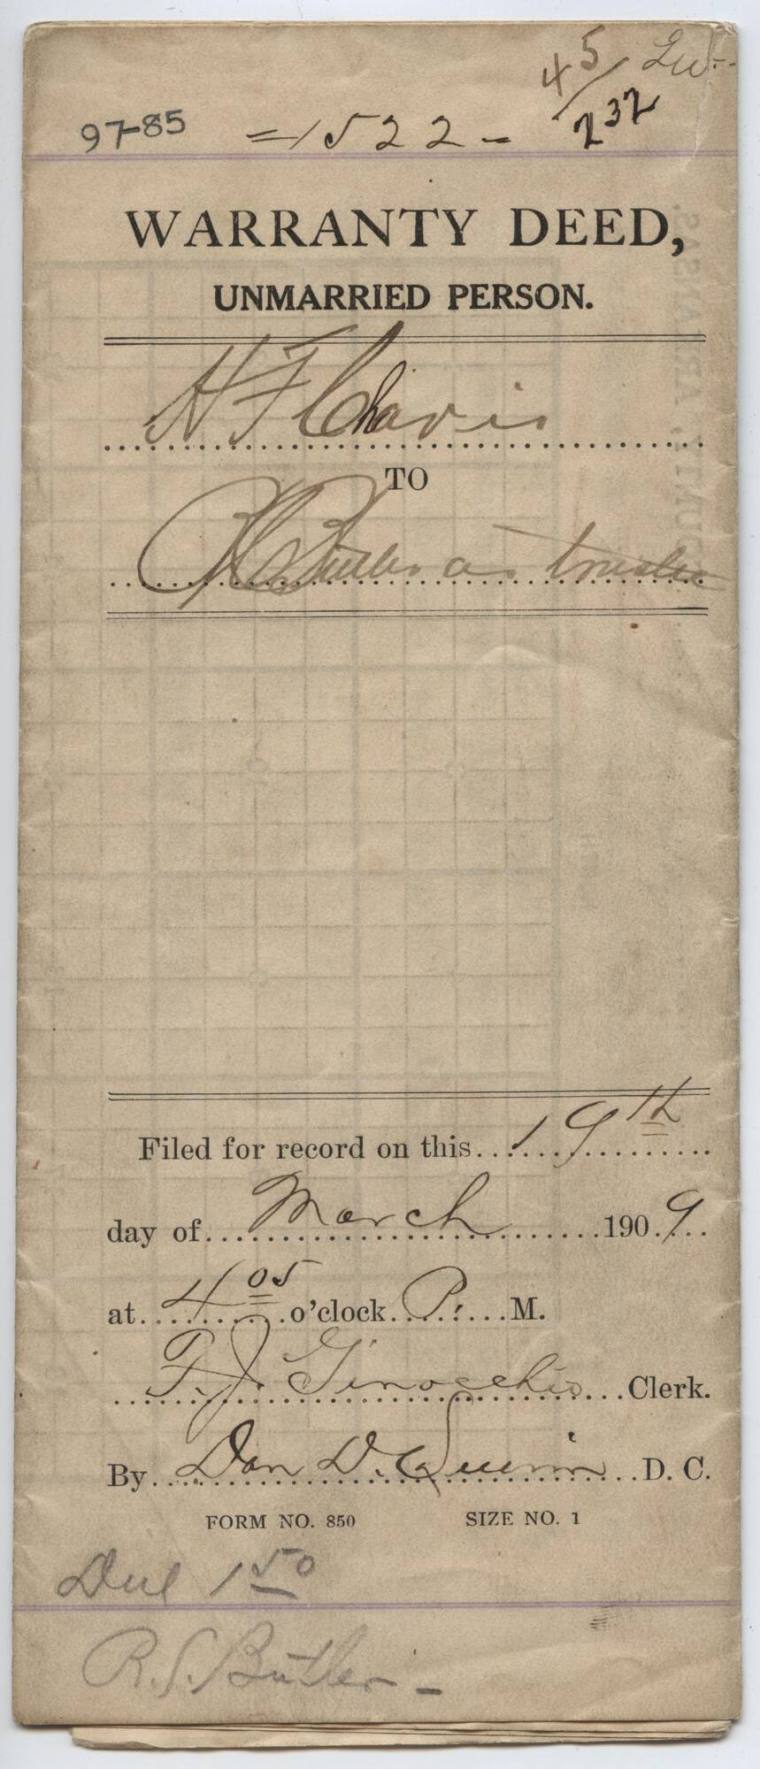 45/232
97-85 =1522-
WARRANTY DEED,
UNMARRIED PERSON.
H F Chavis
TO
Butler as trustee
Filed for record on this 19th
day of March 1909
at 4 05 o'clock P. M.
F. J. Ginocchio Clerk.
By Dan D. Quinn D. C.
FORM NO. 850 SIZE NO. 1
Due 1 50
R. S. Butler -